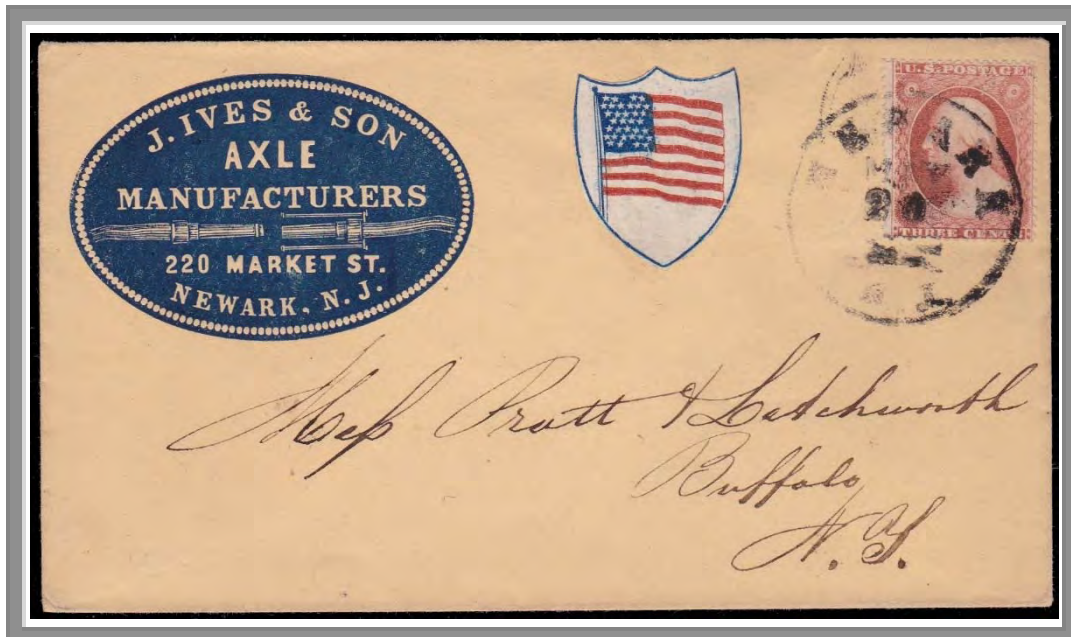 J. IVES & SON
AXLE
MANUFACTURERS
220 MARKET ST.
NEWARK, N. J.
U.S. POSTAGE
THREE CENTS
NEWARK
20
N J
Mess Pratt & Letchworth
Buffalo
N.Y.